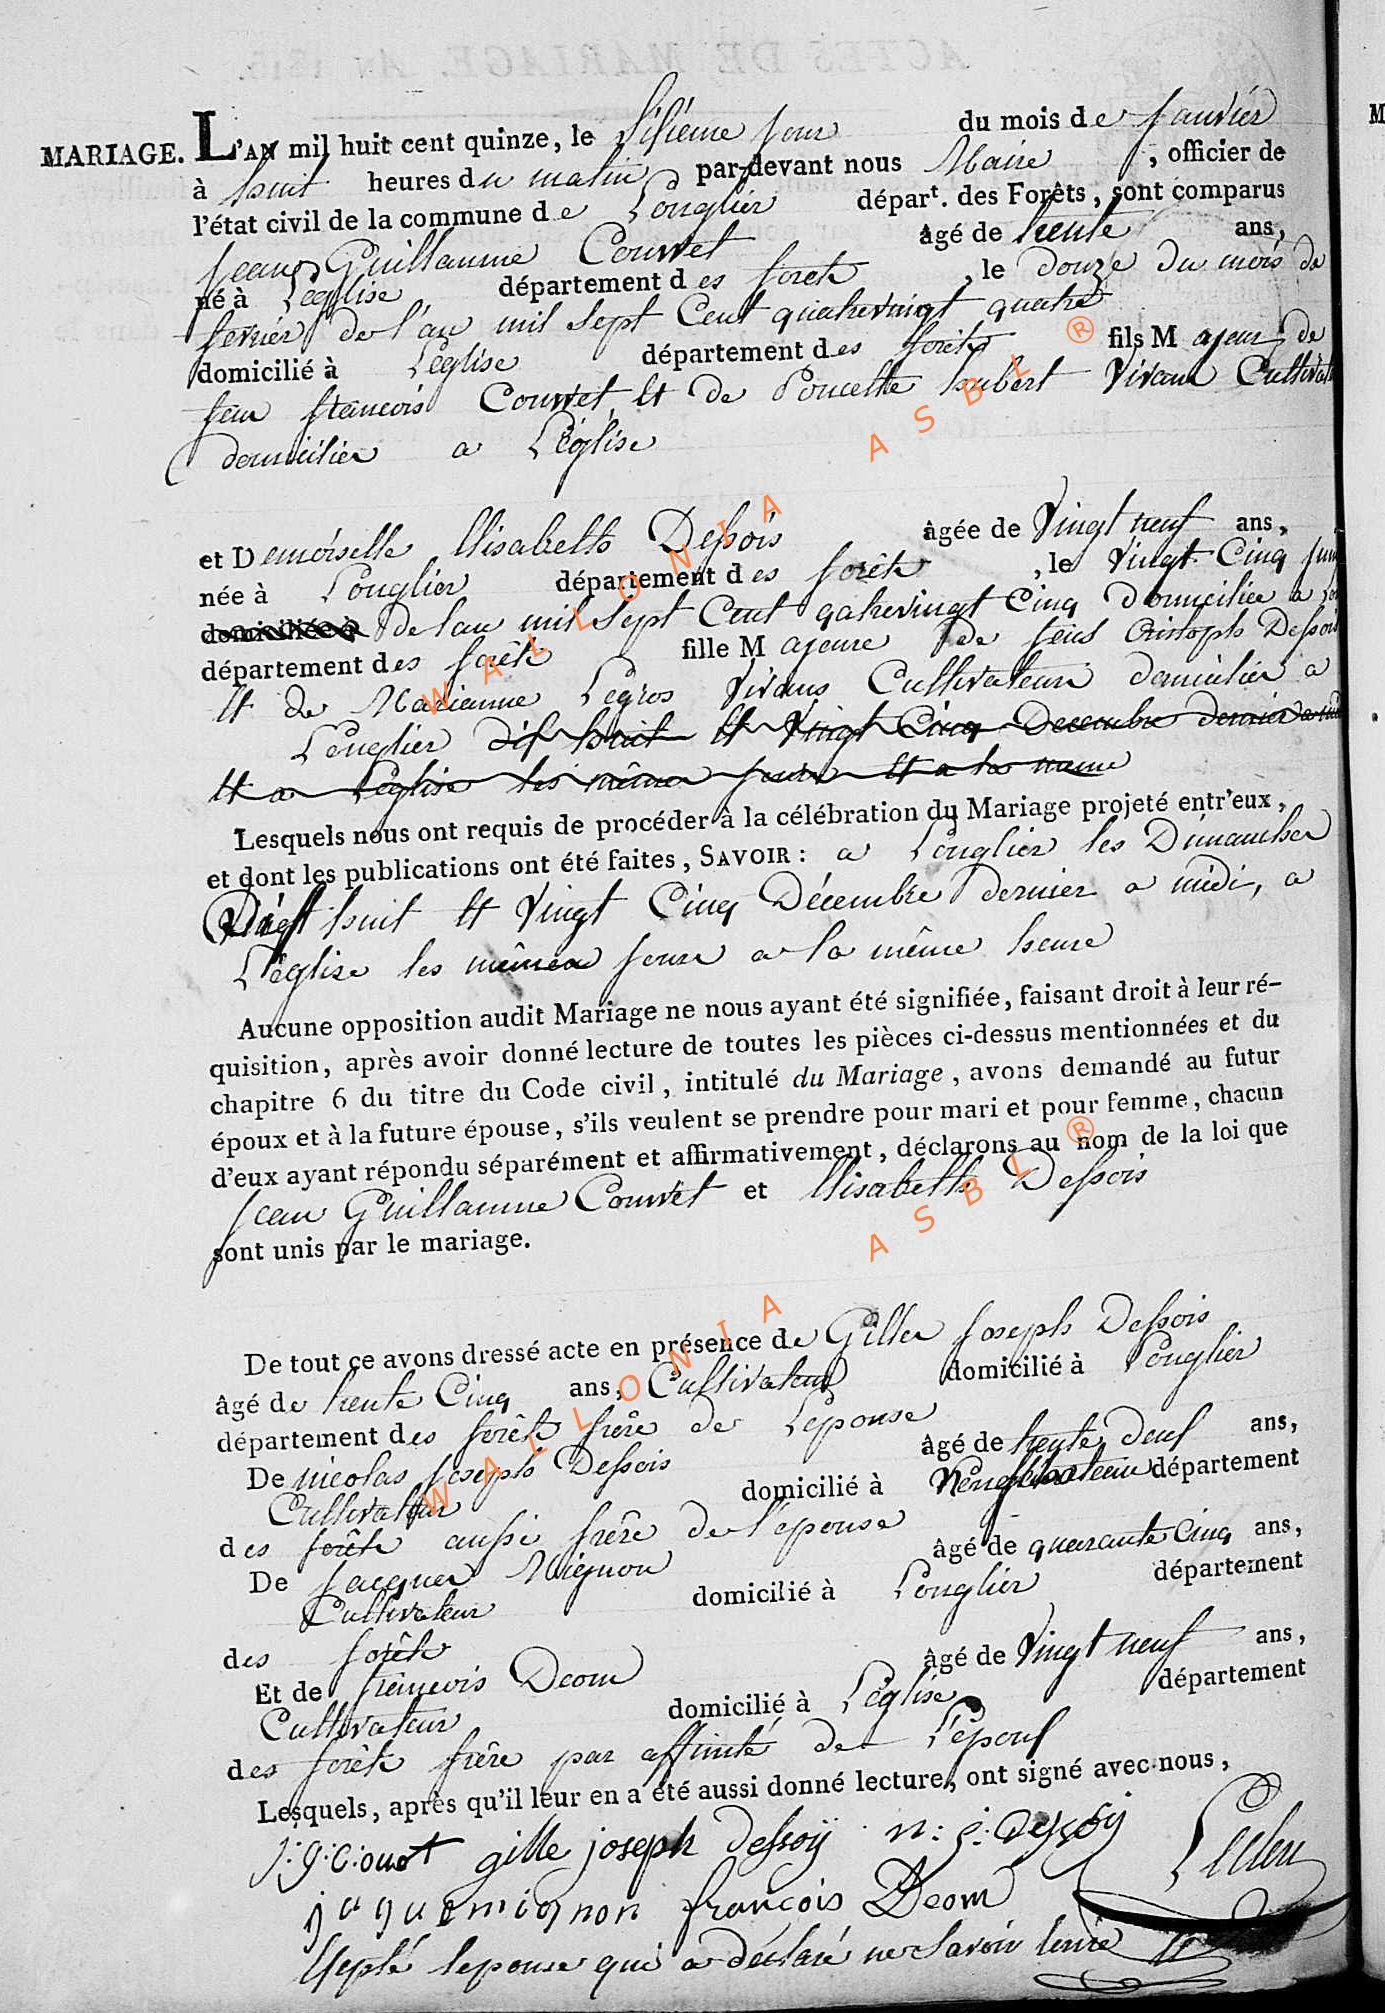 MARIAGE. L'AN mil huit cent quinze, le Sisieme jour du mois de janvier
à huit heures du matin par-devant nous Maire, officier de
l'état civil de la commune de Longlier départ. des Forêts, sont comparus
Jean Guillaume Couvet âgé de trente ans,
né à Léglise département des forets, le douze du mois de
fevrier de l'an mil sept Cent quatrevingt quatre
domicilié à Léglise département des forêts fils Majeur de
feu françois Couvet et de Poncette hubert Vivans Cultivat
domicilier a Léglise
et Demoiselle Elisabeth Dessois âgée de Vingt neuf ans,
née à Longlier département des forêts, le Vingt Cinq juin
domiciliée à de lan mil sept Cent qatrevingt Cinq Domiciliée a Lon
département des forêts fille Majeure de feus Cristoph Dessois
et de Marianne Legros Vivans Cultivateur domicilier a
Longlier dif huit et Vingt Cinq Decembre dernier a midi
et a Léglise les même jours et a la meme
Lesquels nous ont requis de procéder à la célébration du Mariage projeté entr'eux,
et dont les publications ont été faites, SAVOIR : a Longlier les Dimanches
huit et Vingt Cinq Décembre dernier a midi, a
Léglise les mêmes jours a la même heure
Aucune opposition audit Mariage ne nous ayant été signifiée, faisant droit à leur ré-
quisition, après avoir donné lecture de toutes les pièces ci-dessus mentionnées et du
chapitre 6 du titre du Code civil, intitulé du Mariage, avons demandé au futur
époux et à la future épouse, s'ils veulent se prendre pour mari et pour femme, chacun
d'eux ayant répondu séparément et affirmativement, déclarons au nom de la loi que
Jean Guillaume Couvet et Elisabeth Dessois
sont unis par le mariage.
De tout ce avons dressé acte en présence de Gilles Joseph Dessois
âgé de trente Cinq ans, Cultivateur domicilié à Longlier
département des forêts frere de Lépouse
De nicolas Joseph Dessois âgé de trente deuf ans,
Cultivateur domicilié à département
des forêts aussi frêre de l'épouse
De Jacques Mignon âgé de quarante Cinq ans,
Cultivateur domicilié à Longlier département
des forêts
Et de françois Deom âgé de Vingt neuf ans,
Cultivateur domicilié à Léglise département
des forêts frêre par affinité de L'épouf
Lesquels, après qu'il leur en a été aussi donné lecture, ont signé avec nous,
J: g: C: ouvet gille joseph dessoÿ n: j: dessoÿ
jaque mignon françois Deom
Excepté lepouse qui a déclaré ne Savoir écrire
WALLONIA ASBL ®
WALLONIA ASBL ®